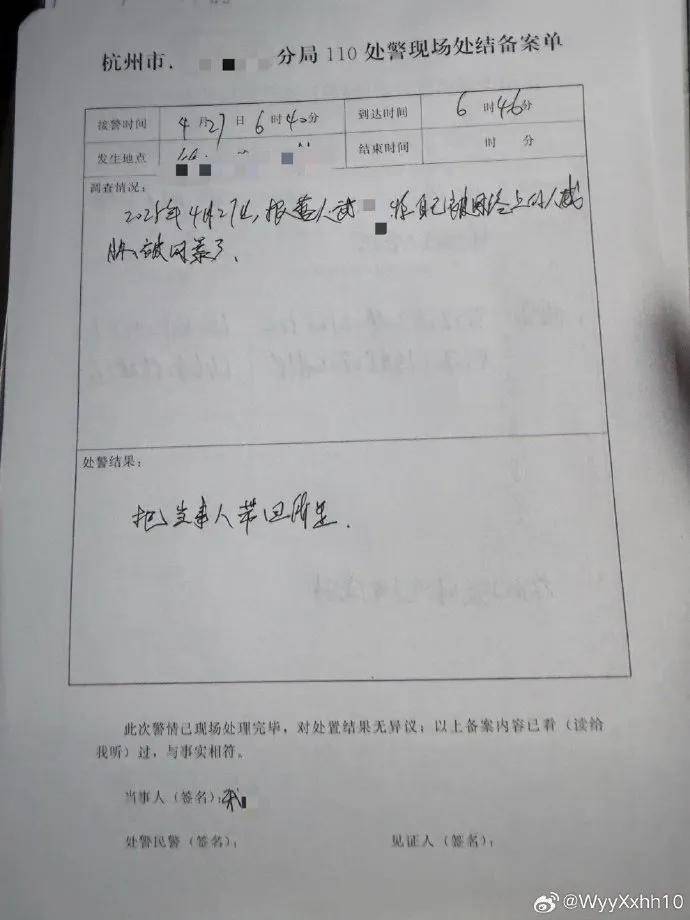 杭州市 分局110处警现场处结备案单
接警时间 4月27日6时40分 到达时间 6时46分
发生地点 结束时间 时 分
调查情况:
2025年4月27日,报警人 称自己被网络上的人威
胁,被网暴了.
处警结果:
把当事人带回所里.
此次警情已现场处理完毕,对处置结果无异议;以上备案内容已看(读给
我听)过,与事实相符。
当事人(签名):
处警民警(签名): 见证人(签名):
@WyyXxhh10